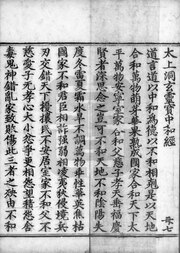 太上洞玄靈寶中和經
母七
道言道以中和為德以不和相剋是以天地
合和萬物萌芽華果熟成國家合和天下太
平萬物安寧室家合和父慈子孝天垂福慶
賢者深思念之豈可不和天地不和陰陽失
度冬雷夏霜水旱不調萬物乖性華英焦枯
國家不和君臣相詐強弱相凌夷狄侵境兵
刃交錯天下擾攘民不安居室家不和父不
慈愛子无孝心大小忿錯更相怨望積怨含
毒鬼神錯亂家致敗傷此三者之殃由不和